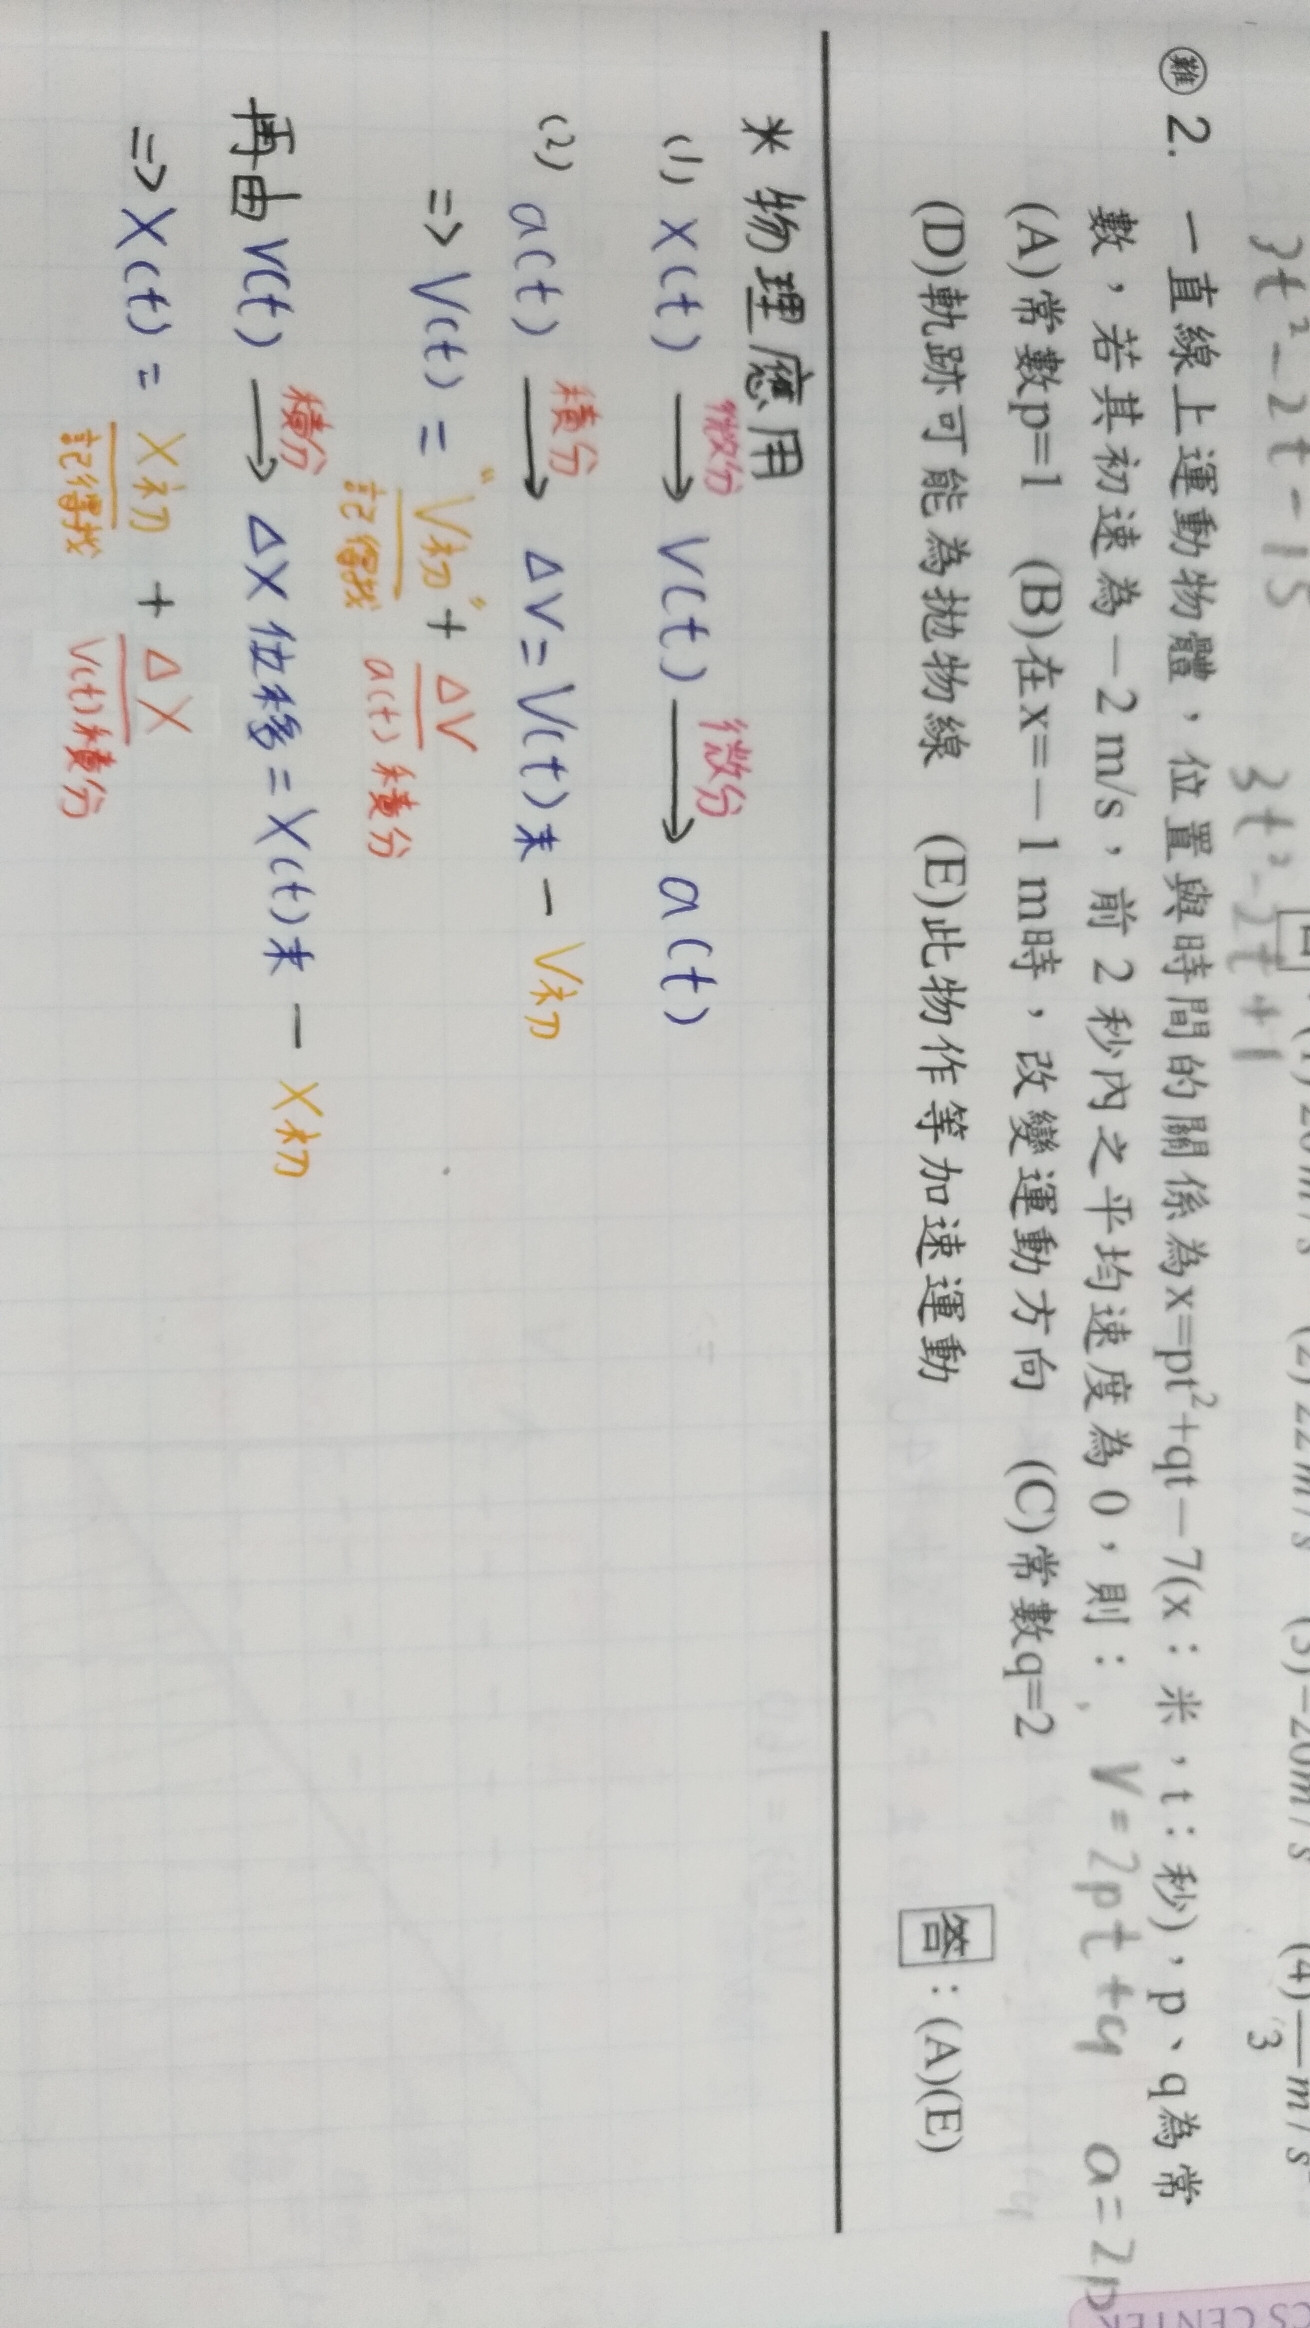 3t²-2t-15
3t²-2t+1
(4) — m/s
3
難 2. 一直線上運動物體，位置與時間的關係為x=pt²+qt－7(x：米，t：秒)，p、q為常
數，若其初速為－2 m/s，前 2 秒內之平均速度為 0，則： V=2pt+q a=2p
(A)常數p=1 (B)在x=－1 m時，改變運動方向 (C)常數q=2
(D)軌跡可能為拋物線 (E)此物作等加速運動
答：(A)(E)
* 物理應用
微分 微分
(1) X(t) → V(t) → a(t)
積分
(2) a(t) → ΔV = V(t)末 - V初
=> V(t) = "V初" + ΔV
記得找 a(t)積分
積分
再由 V(t) → ΔX 位移 = X(t)末 - X初
=> X(t) = X初 + ΔX
記得找 V(t)積分
CS CENTER